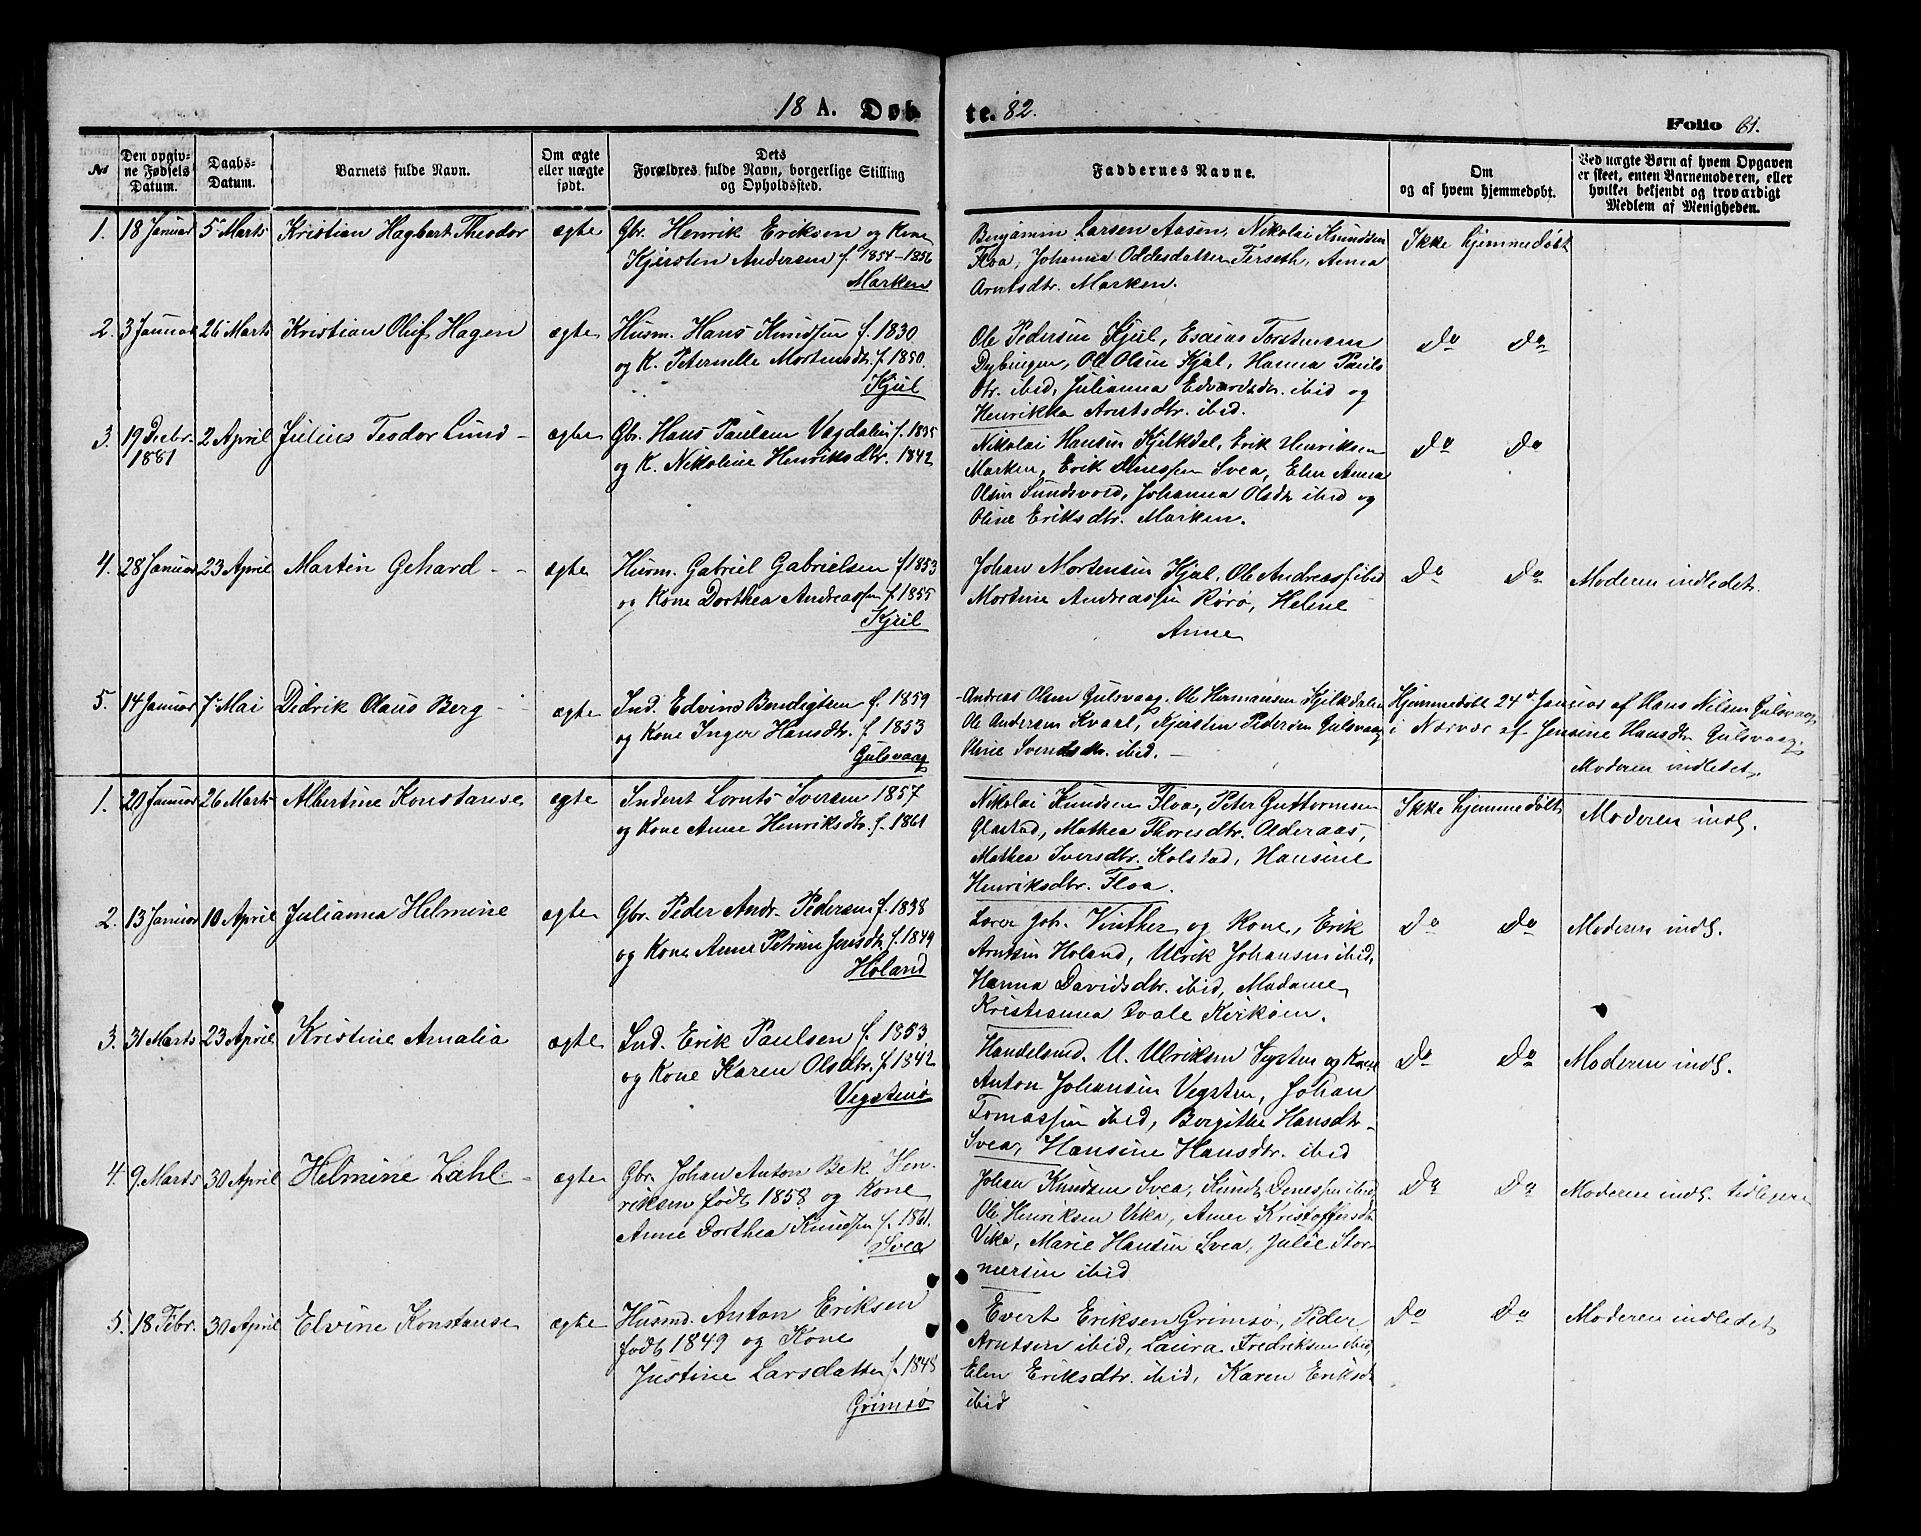 18 A. Døb
te. 82.
Folio 61.
No
Den opgiv-
ne Fødsels
Datum.
Daabs-
Datum.
Barnets fulde Navn.
Om ægte
eller uægte
født.
Dets
Forældres fulde Navn, borgerlige Stilling
og Opholdssted.
Faddernes Navne.
Om
og af hvem hjemmedøbt.
Ved uægte Børn af hvem Opgaven
er skeet, enten Barnemoderen, eller
hvilket bekjendt og troværdigt
Medlem af Menigheden.
1. 18 Januar 5 Marts Kristian Hagbart Theodor ægte Gbr. Henrik Eriksen og Kone
Kjersten Andersen f. 1854-1856
Marken
Benjamin Larsen Aasen, Nikolai Knudsen
Floa, Johanna Oddesdatter Forseth, Anna
Arntsdtr. Marken.
Ikke hjemmedøbt
2. 3 Januar 26 Marts Kristian Oluf Hagen ægte Husm. Hans Knudsen f. 1830
og K. Peternelle Mortensdtr. f. 1850.
Kjul
Ole Pedersen Kjul, Esaias Torstensen
Dybingen, Ole Olsen Kjul, Hanna Pauls
dtr. ibid, Julianna Edvardsdtr. ibid og
Henrikka Arntsdtr. ibid.
Do Do
3. 19 Decbr. 2 April Julius Teodor Lund - ægte Gbr. Hans Paulsen Vegdalen f. 1835
1881 og K. Nikoline Henriksdtr. 1842
Nikolai Hansen Kjelkdal, Erik Henriksen
Marken, Erik Enessen Svea, Elen Anna
Olsen Sundsvold, Johanna Olsdtr ibid og
Oline Eriksdtr. Marken.
Do Do
4. 28 Januar 23 April Martin Gehard - - ægte Husm. Gabriel Gabrielsen f 1853
og Kone Dorthea Andreassen f. 1855
Kjul
Johan Mortensen Kjul, Ole Andreass. ibid
Mortine Andreassen Rørø, Helene
Anne
Do Do Moderen indledet.
5. 14 Januar 7 Mai Didrik Olaus Berg - ægte Ind. Edvins Bendigtsen f. 1859
og Kone Inger Hansdtr. f. 1853
Gulsvaag
Andreas Olsen Gulsvaag, Ole Hermansen Kjelkdalen
Ole Andersen Kvarl, Kjersten Pedersen Gulsvaag
Oline Svendsdtr. ibid. -
Hjemmedøbt 24de Januar af Hans Nilsen Gulsvaag
i Nærvær af Jensine Hansdtr. Gulsvaag.
Moderen indledet.
1. 20 Januar 26 Marts Albertine Konstanse ægte Inderst Lornts Iversen 1857
og Kone Anne Henriksdtr. f. 1861
Nikolai Knudsen Floa, Peter Guttormsen
Glastad, Mathea Thoresdtr. Olderaas,
Mathea Iversdtr. Kolstad, Hansine
Henriksdtr. Floa.
Ikke hjemmedøbt Moderen indl.
2. 13 Januar 10 April Julianna Helmine ægte Gbr. Peder Andr. Pedersen f. 1838
og Kone Anne Petrine Jensdtr. f. 1849
Høland
Lærer Joh. Vinther og Kone, Erik
Arntsen Høland, Ulrik Johansen ibid,
Hanna Davidsdtr. ibid, Madame
Kristianna Qvale Kirkøien.
Do Do Moderen indl.
3. 31 Marts 23 April Kristine Amalia ægte Ind. Erik Paulsen f. 1853
og Kone Karen Olsdtr. f. 1842
Vegstenø
Handelsmd. U. Ulriksen Vegsten og Kone
Anton Johansen Vegsten, Johan
Tomassen ibid, Bergithe Hansdtr.
Svea, Hansine Hansdtr. ibid
Do Do Moderen indl.
4. 9 Marts 30 April Helmine Zahl - ægte Gbr. Johan Anton Bek Hen-
riksen født 1858 og Kone
Anne Dorthea Knudsen f. 1861.
Svea
Johan Knudsen Svea, Knud Enessen ibid
Ole Henriksen Vika, Anne Kristoffersdtr
Vika, Marie Hansen Svea, Julie Stor-
mersen ibid
Do Do Moderen indl. tidligere
5. 18 Febr. 30 April Elvine Konstanse ægte Husmd. Anton Eriksen
født 1849 og Kone
Justine Larsdatter f. 1848
Grimsø
Evert Eriksen Grimsø, Peder
Arntsen ibid, Laura Fredriksen ibid,
Elen Eriksdtr. ibid, Karen Eriksdtr
ibid
Do Do Moderen indledet